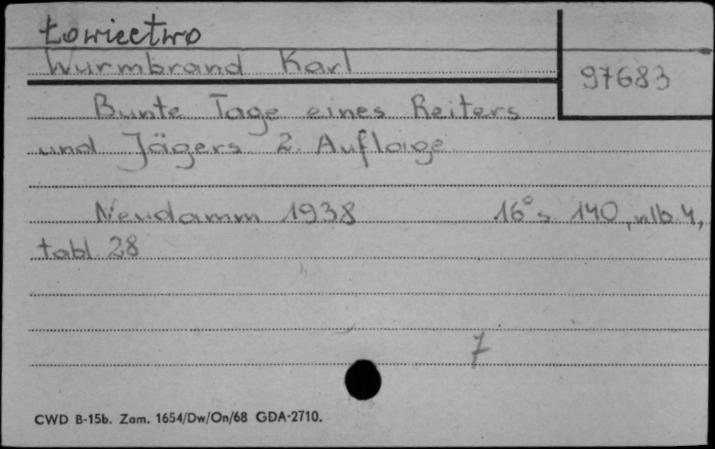 Łowiectwo
Wurmbrand Karl
97683
Bunte Tage eines Reiters
und Jägers 2. Auflage
Neudamm 1938 16° s. 140, nlb. 4,
tabl. 28
7
CWD B-15b. Zam. 1654/Dw/On/68 GDA-2710.